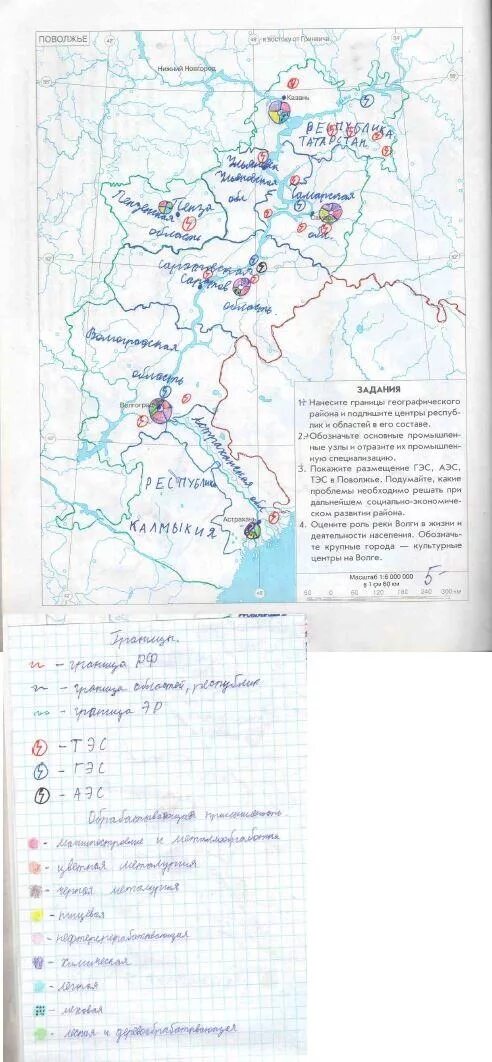 ПОВОЛЖЬЕ
48° к востоку от Гринвича
Нижний Новгород
Казань
РЕСПУБЛИКА
ТАТАРСТАН
Ульяновская
обл
Самарская
обл.
Пенза
Пензенская
область
Саратовская
Саратов
область
Волгоградская
область
Волгоград
Астраханская обл
РЕСПУБЛИКА
КАЛМЫКИЯ
Астрахань
ЗАДАНИЯ
1. Нанесите границы географического
района и подпишите центры респуб-
лик и областей в его составе.
2. Обозначьте основные промышлен-
ные узлы и отразите их промышлен-
ную специализацию.
3. Покажите размещение ГЭС, АЭС,
ТЭС в Поволжье. Подумайте, какие
проблемы необходимо решать при
дальнейшем социально-экономичес-
ком развитии района.
4. Оцените роль реки Волги в жизни и
деятельности населения. Обозначь-
те крупные города — культурные
центры на Волге.
Масштаб 1:6 000 000
в 1 см 60 км
5-
60 0 60 120 180 240 300 км
Границы.
- граница РФ
- граница областей, республик
- граница ЭР
- ТЭС
- ГЭС
- АЭС
Обрабатывающая промышленность
- машиностроение и металлообработка
- цветная металургия
- черная металургия
- пищевая
- нефтеперерабатывающая
- химическая
- лёгкая
- меховая
- лесная и деревообрабатывающая